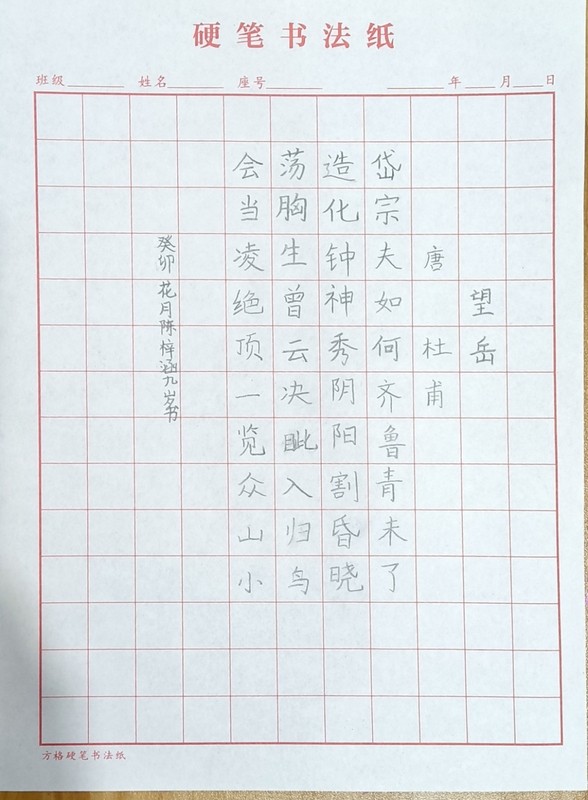 硬笔书法纸
班级 姓名 座号 年 月 日
望岳
唐 杜甫
岱宗夫如何齐鲁青未了
造化钟神秀阴阳割昏晓
荡胸生曾云决眦入归鸟
会当凌绝顶一览众山小
癸卯 花月陈梓涵九岁书
方格硬笔书法纸